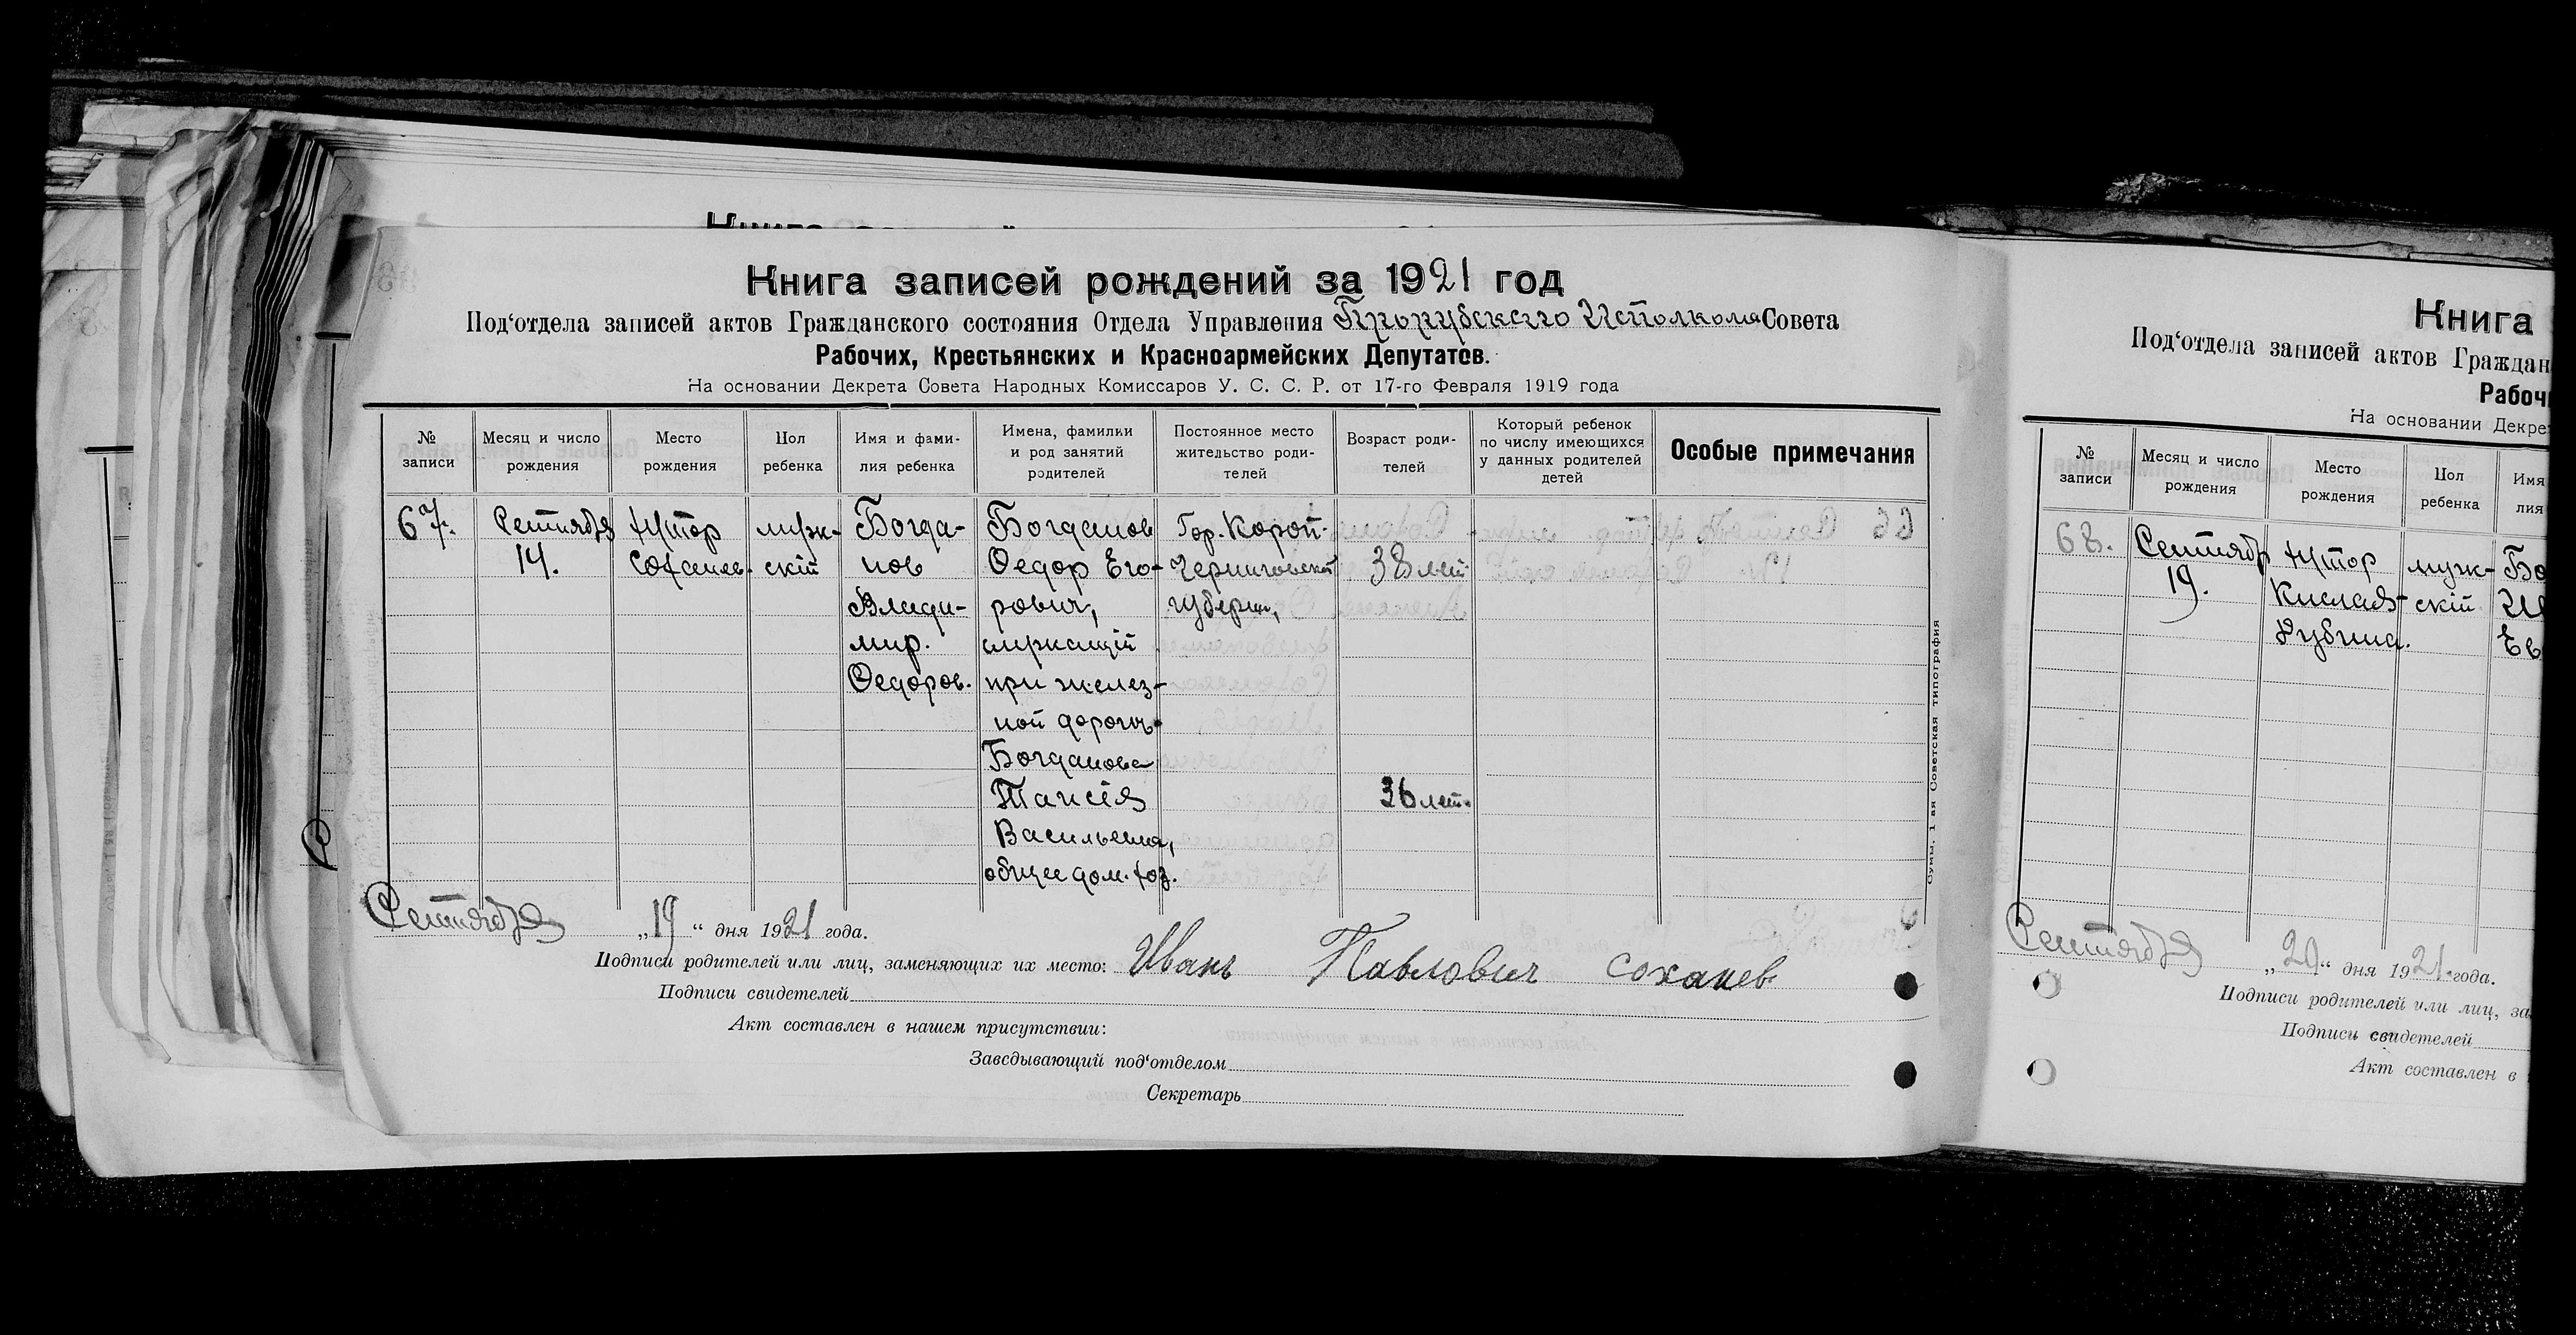 Книга записей рождений за 1921 год
Под‘отдела записей актов Гражданского состояния Отдела Управления Исполкома Совета
Рабочих, Крестьянских и Красноармейских Депутатов.
На основании Декрета Совета Народных Комиссаров У. С. С. Р. от 17-го Февраля 1919 года
№ записи
Месяц и число рождения
Место рождения
Пол ребенка
Имя и фами-
лия ребенка
Имена, фамилии
и род занятий
родителей
Постоянное место
жительство роди-
телей
Возраст роди-
телей
Который ребенок
по числу имеющихся
у данных родителей
детей
Особые примечания
67.
Сентября
14.
хутор
муж-
скій
Богда-
нов
Влади-
мир.
Федоров.
Богданов
Федор Его-
рович,
служащій
при желез-
ной дороги.
Богданова
Таисія
Васильевна,
общее дом. хоз.
Гор. Короп.
Черниговской
губерни,
38 лет
36 лет.
Сумы, 1-ая Советская типография
Сентября „19“ дня 1921 года.
Подписи родителей или лиц, заменяющих их место: Иванъ Павлович Соханев
Подписи свидетелей
Акт составлен в нашем присутствии:
Заведывающий под‘отделом
Секретарь
Книга
Под‘отдела записей актов Граждан
Рабочи
На основании Декре
№ записи
Месяц и число рождения
Место рождения
Пол ребенка
Имя
лия
68.
Сентября
19.
хутор
муж-
скій
Бо
Ев
Сентября „20“ дня 1921 года.
Подписи родителей или лиц, за
Подписи свидетелей
Акт составлен в